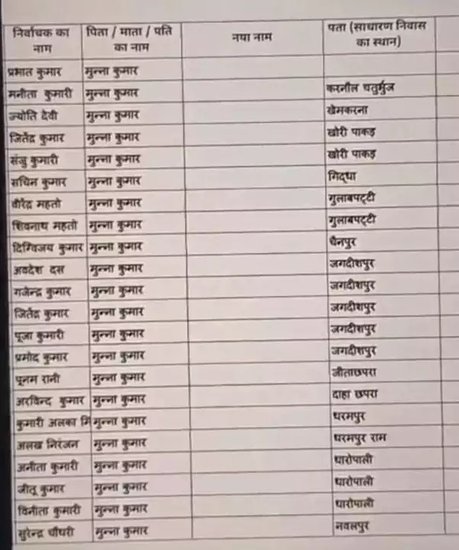 निर्वाचक का नाम पिता / माता / पति का नाम नया नाम पता (साधारण निवास का स्थान)
प्रभात कुमार मुन्ना कुमार
मनीता कुमारी मुन्ना कुमार करनौल चतुर्भुज
ज्योति देवी मुन्ना कुमार खेमकरना
जितेंद्र कुमार मुन्ना कुमार खोरी पाकड़
संजु कुमारी मुन्ना कुमार खोरी पाकड़
सचिन कुमार मुन्ना कुमार गिद्धा
वीरेंद्र महतो मुन्ना कुमार गुलाबपट्टी
शिवनाथ महतो मुन्ना कुमार गुलाबपट्टी
दिग्विजय कुमार मुन्ना कुमार चैनपुर
अवदेश दस मुन्ना कुमार जगदीशपुर
गजेन्द्र कुमार मुन्ना कुमार जगदीशपुर
जितेंद्र कुमार मुन्ना कुमार जगदीशपुर
पूजा कुमारी मुन्ना कुमार जगदीशपुर
प्रमोद कुमार मुन्ना कुमार जगदीशपुर
पूनम रानी मुन्ना कुमार जीताछपरा
अरविन्द कुमार मुन्ना कुमार दाहा छपरा
कुमारी अलका मि मुन्ना कुमार धरमपुर
अलख निरंजन मुन्ना कुमार धरमपुर राम
अनीता कुमारी मुन्ना कुमार धारोपाली
जीतू कुमार मुन्ना कुमार धारोपाली
विनीता कुमारी मुन्ना कुमार धारोपाली
सुरेन्द्र चौधरी मुन्ना कुमार नवलपुर